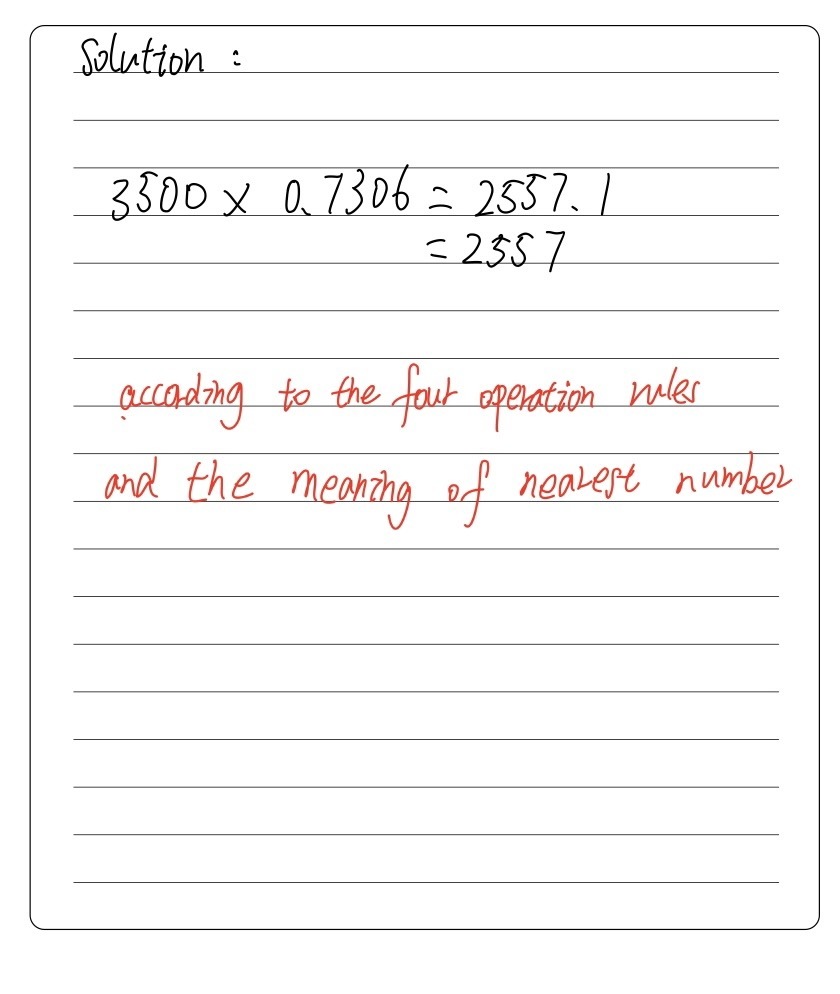 Solution :
3500 × 0.7306 = 2557.1
= 2557
according to the four operation rules
and the meaning of nearest number